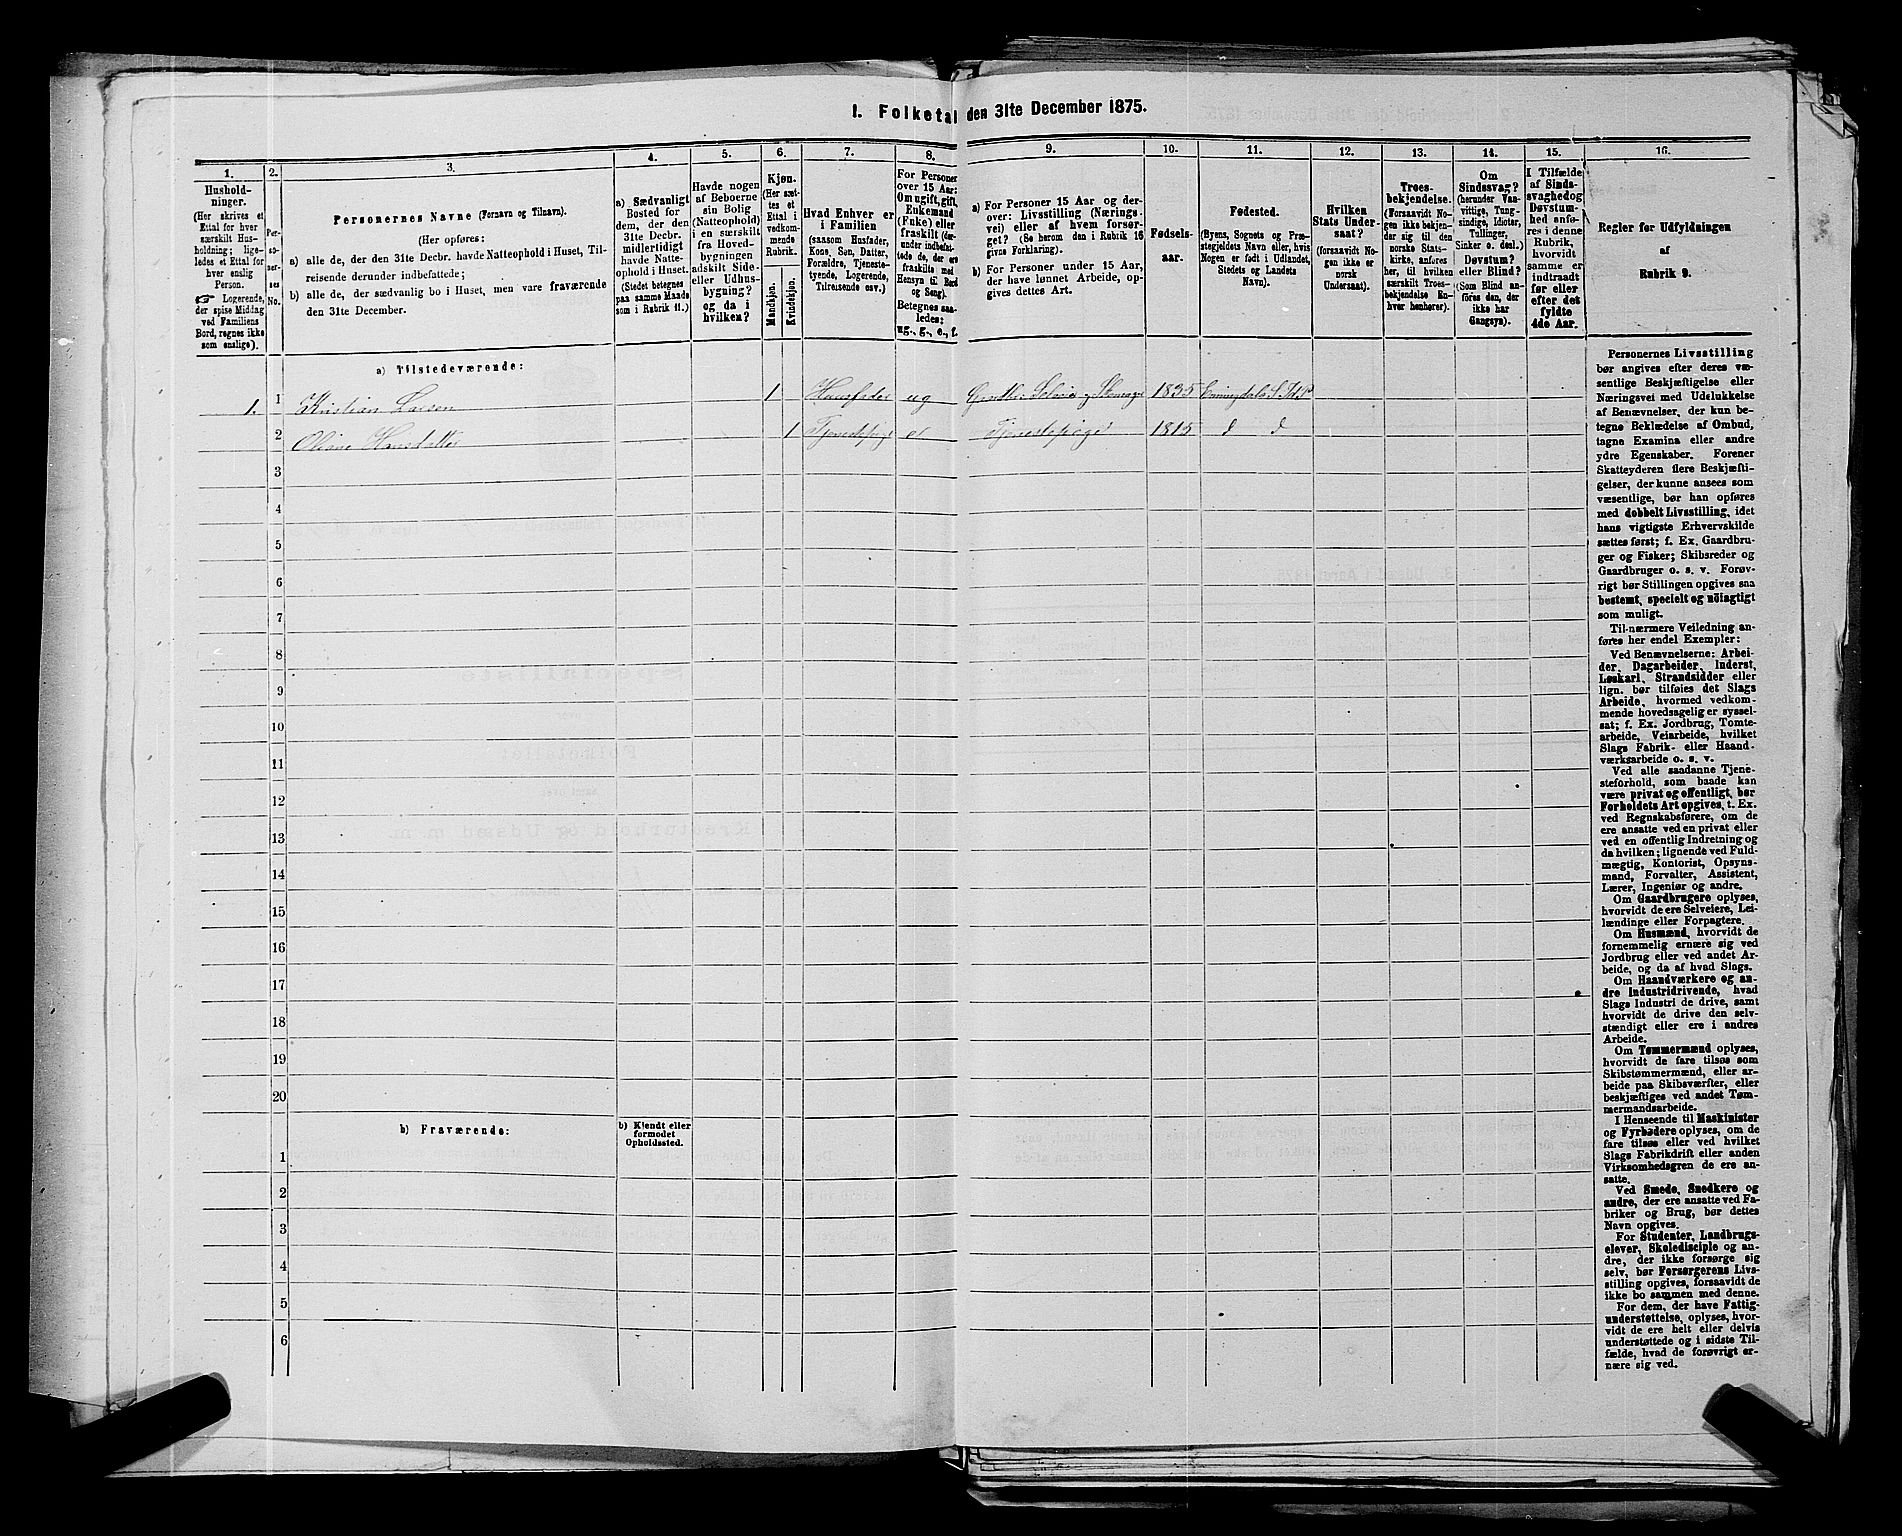 1. Folketal den 31te December 1875.
1.
2.
3.
4.
5.
6.
7.
8.
9.
10.
11.
12.
13.
14.
15.
16.
Hushold-
ninger.
(Her skrives et
Ettal for hver
særskilt Hus-
holdning; lige-
ledes et Ettal for
hver enslig
Person.
Logerende,
der spise Middag
ved Familiens
Bord, regnes ikke
som enslige).
Per-
so-
ner-
nes
No.
Personernes Navne (Fornavn og Tilnavn).
(Her opføres:
a) alle de, der den 31te Decbr. havde Natteophold i Huset, Til-
reisende derunder indbefattede;
b) alle de, der sædvanlig bo i Huset, men vare fraværende
den 31te December.
a) Sædvanligt
Bosted for
dem, der den
31te Decbr.
midlertidigt
havde Natte-
ophold i Huset.
(Stedet betegnes
paa samme Maade
som i Rubrik 11.)
Havde nogen
af Beboerne
sin Bolig
(Natteophold)
i en særskilt
fra Hoved-
bygningen
adskilt Side-
eller Udhus-
bygning?
og da i
hvilken?
Kjøn.
(Her sæt-
tes et
Ettal i
vedkom-
mende
Rubrik.
Mandkjøn.
Kvindekjøn.
Hvad Enhver er
i Familien
(saasom Husfader,
Kone, Søn, Datter,
Forældre, Tjeneste-
tyende, Logerende,
Tilreisende osv.)
For Personer
over 15 Aar:
Om ugift, gift,
Enkemand
(Enke) eller
fraskilt (der-
under indbefat-
tede de, der ere
fraskilte med
Hensyn til Bord
og Seng).
Betegnes saa-
ledes:
ug., g., e., f.
a) For Personer 15 Aar og der-
over: Livsstilling (Nærings-
vei) eller af hvem forsør-
get? (Se herom den i Rubrik 16
givne Forklaring).
b) For Personer under 15 Aar,
der have lønnet Arbeide, op-
gives dettes Art.
Fødsels-
aar.
Fødested.
(Byens, Sognets og Præ-
stegjeldets Navn eller, hvis
Nogen er født i Udlandet,
Stedets og Landets
Navn).
Hvilken
Stats Under-
saat?
(forsaavidt No-
gen ikke er
norsk
Undersaat).
Troes-
bekjendelse.
(Forsaavidt No-
gen ikke bekjen-
der sig til den
norske Stats-
kirke, anføres
her, til hvilken
særskilt Troes-
bekjendelse En-
hver henhører).
Om
Sindssvag?
(herunder Van-
vittige, Tung-
sindige, Idioter,
Tullinger,
Sinker o. desl.)
Døvstum?
eller Blind?
(Som Blind an-
føres den, der
ikke har
Gangsyn).
I Tilfælde
af Sinds-
svaghed og
Døvstum-
hed anfø-
res i denne
Rubrik,
hvorvidt
samme er
indtraadt
før eller
efter det
fyldte
4de Aar.
Regler for Udfyldningen
af
Rubrik 9.
a) Tilstedeværende:
1. 1 Kristian Larsen 1 Huusfader ug Gaardbr. Selveier og Skomager 1835 Enningdals S. Id. P
2 Oliane Hansdatter 1 Tjenestepige Tjenestepige 1815 d d
3
4
5
6
7
8
9
10
11
12
13
14
15
16
17
18
19
20
b) Fraværende:
b) Kjendt eller
formodet
Opholdssted.
1
2
3
4
5
6
Personernes Livsstilling
bør angives efter deres væ-
sentlige Beskjæftigelse eller
Næringsvei med Udelukkelse
af Benævnelser, der kun be-
tegne Beklædelse af Ombud,
tagne Examina eller andre
ydre Egenskaber. Forener
Skatteyderen flere Beskjæfti-
gelser, der kunne ansees som
væsentlige, bør han opføres
med dobbelt Livsstilling, idet
hans vigtigste Erhvervskilde
sættes først; f. Ex. Gaardbru-
ger og Fisker; Skibsreder og
Gaardbruger o. s. v. Forøv-
rigt bør Stillingen opgives saa
bestemt, specielt og nöiagtigt
som muligt.
Til nærmere Veiledning an-
føres her endel Exempler:
Ved Benævnelserne: Arbei-
der, Dagarbeider, Inderst,
Løskarl, Strandsidder eller
lign. bør tilføies det Slags
Arbeide, hvormed vedkom-
mende hovedsagelig er syssel-
sat; f. Ex. Jordbrug, Tomte-
arbeide, Veiarbeide, hvilket
Slags Fabrik- eller Haand-
værksarbeide o. s. v.
Ved alle saadanne Tjene-
steforhold, som baade kan
være privat og offentligt, bør
Forholdets Art opgives, t. Ex.
ved Regnskabsførere, om de
ere ansatte ved en privat eller
ved en offentlig Indretning og
da hvilken; lignende ved Fuld-
mægtig, Kontorist, Opsyns-
mand, Forvalter, Assistent,
Lærer, Ingeniør og andre.
Om Gaardbrugere oplyses,
hvorvidt de ere Selveiere, Lei-
lændinge eller Forpagtere.
Om Husmænd, hvorvidt de
fornemmelig ernære sig ved
Jordbrug eller ved andet Ar-
beide, og da af hvad Slags.
Om Haandværkere og an-
dre Industridrivende, hvad
Slags Industri de drive, samt
hvorvidt de drive den selv-
stændigt eller ere i andres
Arbeide.
Om Tømmermænd oplyses,
hvorvidt de fare tilsøs som
Skibstømmermænd, eller ar-
beide paa Skibsværfter, eller
beskjæftiges ved andet Tøm-
mermandsarbeide.
I Henseende til Maskinister
og Fyrbødere oplyses, om de
fare tilsøs eller ved hvilket
Slags Fabrikdrift eller anden
Virksomhedsgren de ere an-
satte.
Ved Smede, Snedkere og
andre, der ere ansatte ved Fa-
briker og Brug, bør dettes
Navn opgives.
For Studenter, Landbrugs-
elever, Skoledisciple og an-
dre, der ikke forsørge sig
selv, bør Forsørgerens Livs-
stilling opgives, forsaavidt de
ikke bo sammen med denne.
For dem, der have Fattig-
understøttelse, oplyses, hvor-
vidt de ere helt eller delvis
understøttede og i sidste Til-
fælde, hvad de forøvrigt er-
nære sig ved.